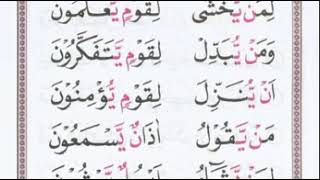 لِمَنْ يَّخْشٰى لِقَوْمٍ يَّعْلَمُوْنَ
وَمَنْ يُّبَدِّلْ لِقَوْمٍ يَّتَفَكَّرُوْنَ
اَنْ يُّنَزِّلَ لِقَوْمٍ يُّؤْمِنُوْنَ
مَنْ يَّقُوْلُ اٰذَانٌ يَّسْمَعُوْنَ